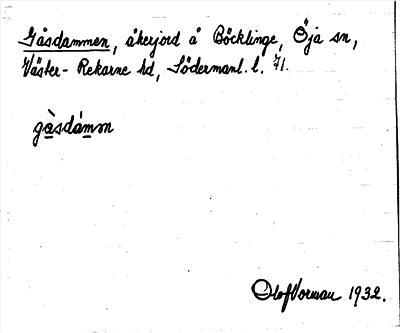 Gåsdammen, åkerjord å Böcklinge, Öja sn,
Väster-Rekarne hd, Södermanl. l. 71.
gàsdámɷn
Olof Vorman 1932.